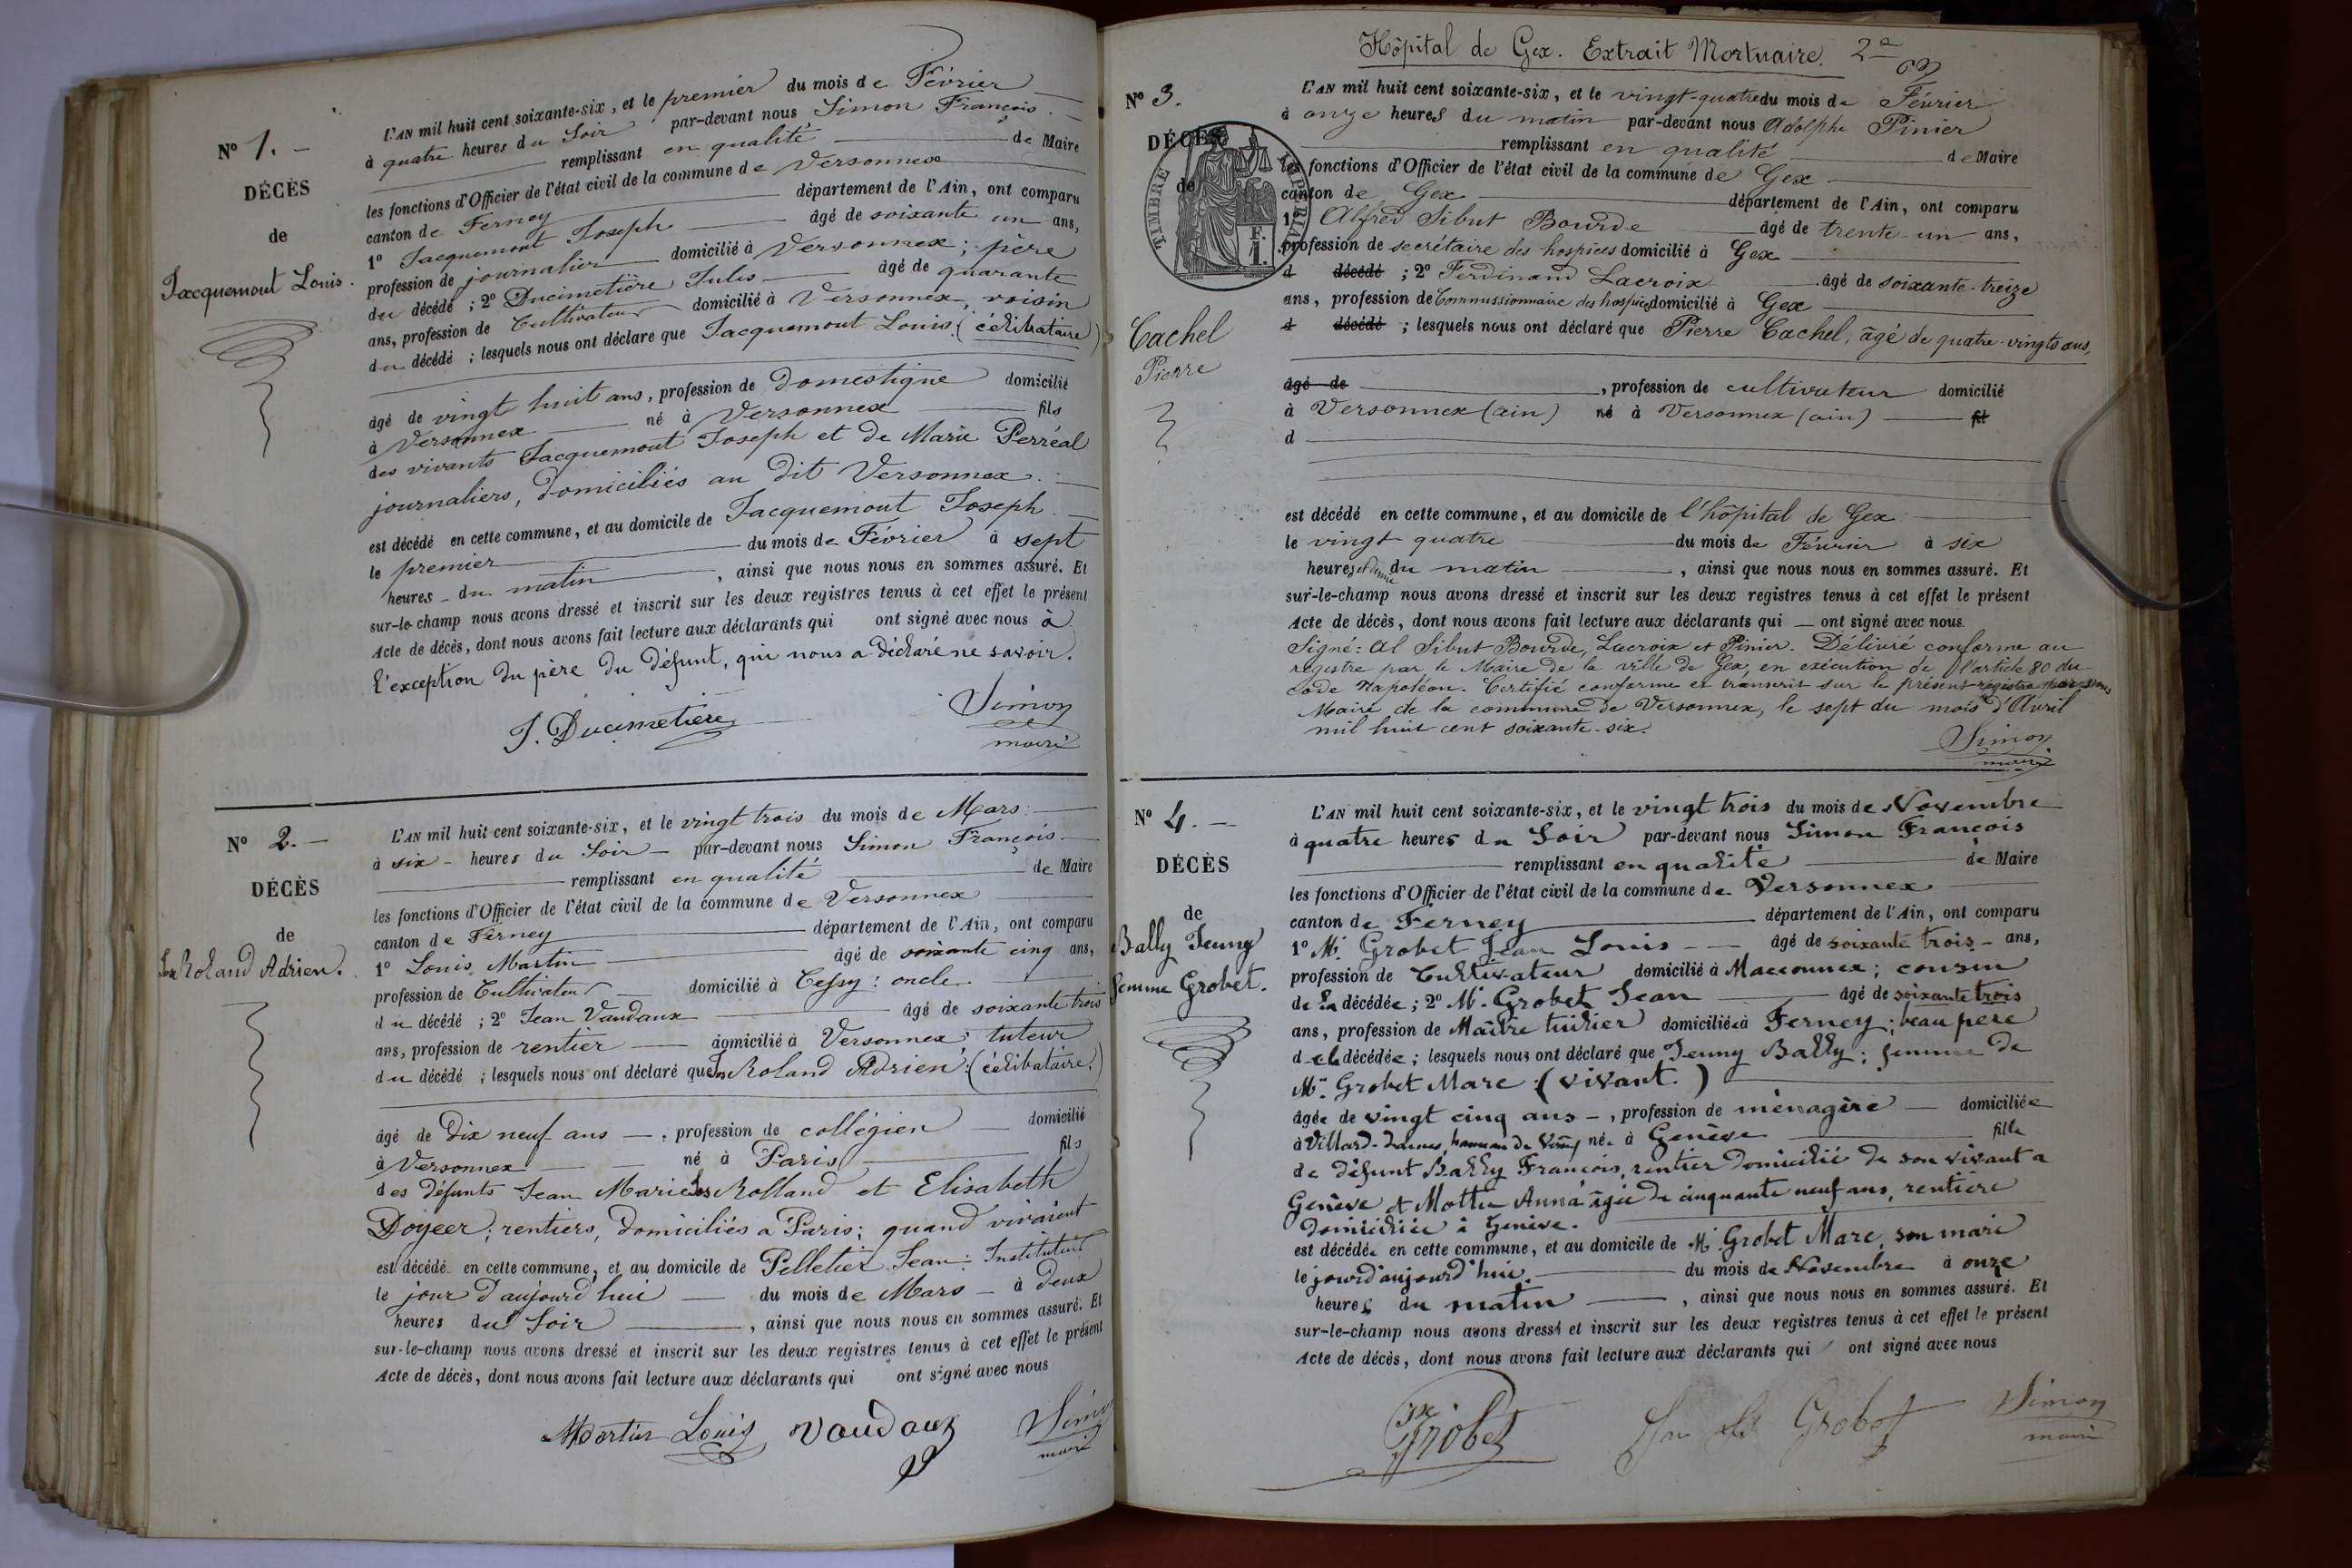 N° 1. —
DÉCÈS
de
Jacquemont Louis.
L'AN mil huit cent soixante-six, et le premier du mois de Février
à quatre heures du Soir par-devant nous Simon François
remplissant en qualité de Maire
les fonctions d'Officier de l'état civil de la commune de Versonnex
canton de Ferney département de l'Ain, ont comparu
1° Jacquemont Joseph âgé de soixante un ans,
profession de journalier domicilié à Versonnex; père
du décédé ; 2° Ducimetière Jules âgé de quarante
ans, profession de Cultivateur domicilié à Versonnex, voisin
du décédé ; lesquels nous ont déclaré que Jacquemont Louis. (célibataire)
âgé de vingt huit ans, profession de Domestique domicilié
à Versonnex né à Versonnex fils
des vivants Jacquemont Joseph et de Marie Perréal
journaliers, domiciliés au dit Versonnex.
est décédé en cette commune, et au domicile de Jacquemont Joseph
le premier du mois de Février à sept
heures du matin , ainsi que nous nous en sommes assuré. Et
sur-le-champ nous avons dressé et inscrit sur les deux registres tenus à cet effet le présent
Acte de décès, dont nous avons fait lecture aux déclarants qui ont signé avec nous à
l'exception du père du défunt, qui nous a déclaré ne savoir.
J. Ducimetière Simon
maire
N° 2. —
DÉCÈS
de
Roland Adrien.
L'AN mil huit cent soixante-six, et le vingt trois du mois de Mars
à six heures du Soir par-devant nous Simon François
remplissant en qualité de Maire
les fonctions d'Officier de l'état civil de la commune de Versonnex
canton de Ferney département de l'Ain, ont comparu
1° Louis Martin âgé de soixante cinq ans,
profession de Cultivateur domicilié à Cessy : oncle
du décédé ; 2° Jean Vaudaux âgé de soixante trois
ans, profession de rentier domicilié à Versonnex; tuteur
du décédé ; lesquels nous ont déclaré que Roland Adrien : (célibataire.)
âgé de Dix neuf ans — , profession de collégien domicilié
à Versonnex né à Paris fils
des défunts Jean Marie Rolland et Elisabeth
Doyeer; rentiers, domiciliés a Paris; quand vivaient
est décédé en cette commune, et au domicile de Pelletier Jean : Instituteur
le jour d'aujourd'hui du mois de Mars — à deux
heures du Soir , ainsi que nous nous en sommes assuré. Et
sur-le-champ nous avons dressé et inscrit sur les deux registres tenus à cet effet le présent
Acte de décès, dont nous avons fait lecture aux déclarants qui ont signé avec nous
Martin Louis Vaudaux Simon
maire
Hôpital de Gex. Extrait Mortuaire.
N° 3.
DÉCÈS
de
TIMBRE IMPÉRIAL
F.
1.
Cachel
Pierre
L'AN mil huit cent soixante-six, et le vingt-quatre du mois de Février
à onze heures du matin par-devant nous Adolphe Pinier
remplissant en qualité de Maire
les fonctions d'Officier de l'état civil de la commune de Gex
canton de Gex département de l'Ain, ont comparu
1° Alfred Sibut Bourde âgé de trente-un ans,
profession de secrétaire des hospices domicilié à Gex
d décédé ; 2° Ferdinand Lacroix âgé de soixante-treize
ans, profession de Commissionnaire des hospices domicilié à Gex
d décédé ; lesquels nous ont déclaré que Pierre Cachel, âgé de quatre-vingts ans,
âgé de , profession de cultivateur domicilié
à Versonnex (ain) né à Versonnex (ain) fil
d
est décédé en cette commune, et au domicile de l'hôpital de Gex
le vingt quatre du mois de Février à six
heures et demie du matin , ainsi que nous nous en sommes assuré. Et
sur-le-champ nous avons dressé et inscrit sur les deux registres tenus à cet effet le présent
Acte de décès, dont nous avons fait lecture aux déclarants qui — ont signé avec nous.
Signé: Al Sibut Bourde, Lacroix et Pinier. Délivré conforme au
registre par le Maire de la ville de Gex, en exécution de l'article 80 du
code Napoléon. Certifié conforme et transcrit sur le présent registre par nous
Maire de la commune de Versonnex, le sept du mois d'Avril
mil huit cent soixante-six.
Simon
maire
N° 4. —
DÉCÈS
de
Bally Jenny
femme Grobet.
L'AN mil huit cent soixante-six, et le vingt trois du mois de Novembre
à quatre heures du Soir par-devant nous Simon François
remplissant en qualité de Maire
les fonctions d'Officier de l'état civil de la commune de Versonnex
canton de Ferney département de l'Ain, ont comparu
1° Mr. Grobet Jean Louis — âgé de soixante trois — ans,
profession de Cultivateur domicilié à Maconnex; cousin
de la décédée; 2° Mr. Grobet Jean âgé de soixante trois
ans, profession de Maître tuilier domicilié à Ferney; beau père
de la décédée; lesquels nous ont déclaré que Jenny Bally; femme de
Mr. Grobet Marc (vivant.)
âgée de vingt cinq ans — , profession de ménagère — domiciliée
à Villard-Dames, hameau de née à Genève fille
de défunt Bally François, rentier domicilié de son vivant a
Genève et Mottu Anna âgée de cinquante neuf ans, rentiere
domiciliée à Genève.
est décédée en cette commune, et au domicile de Mr. Grobet Marc, son mari
le jour d'aujourd'hui. du mois de Novembre à onze
heures du matin , ainsi que nous nous en sommes assuré. Et
sur-le-champ nous avons dressé et inscrit sur les deux registres tenus à cet effet le présent
Acte de décès, dont nous avons fait lecture aux déclarants qui ont signé avec nous
Grobet Grobet Simon
maire